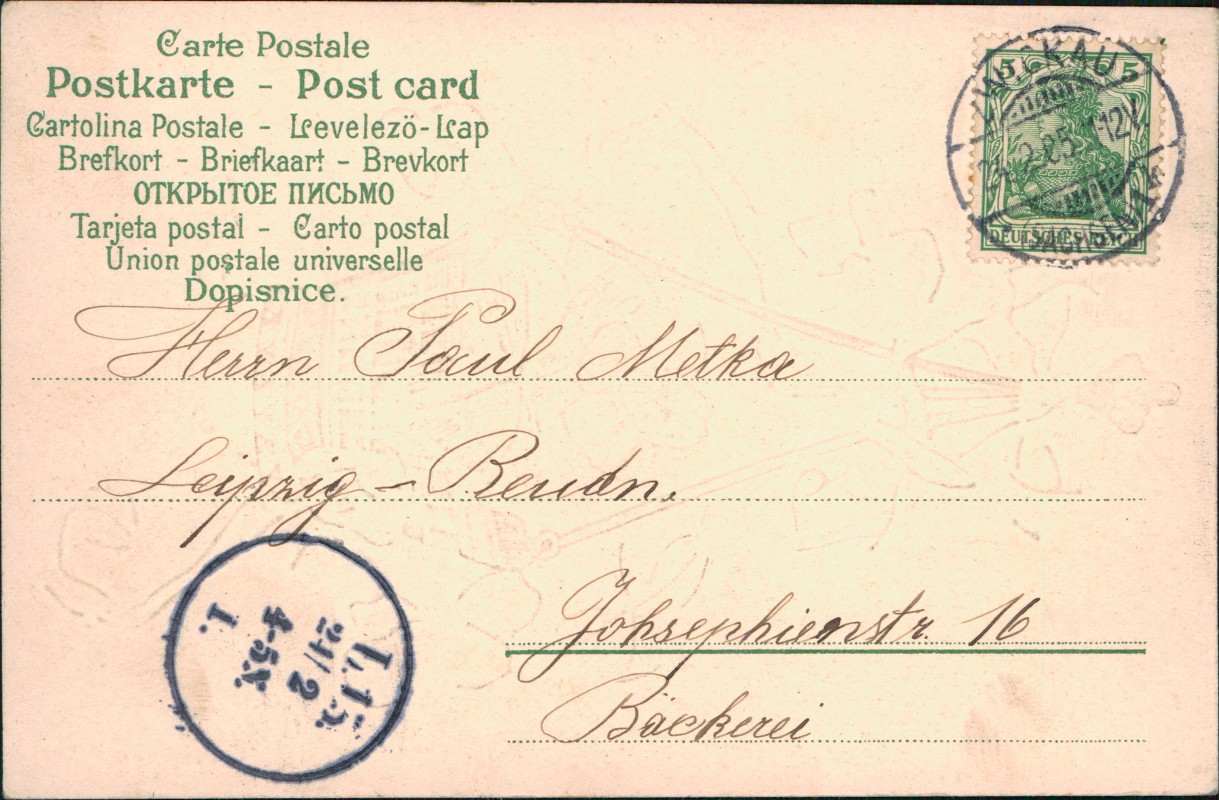 Carte Postale
Postkarte - Post card
Cartolina Postale - Levelező-Lap
Brefkort - Briefkaart - Brevkort
ОТКРЫТОЕ ПИСЬМО
Tarjeta postal - Carto postal
Union postale universelle
Dopisnice.
5 5
ZWICKAU
24.2.05. 12V.
DEUTSCHES REICH
Herrn Paul Metka
Leipzig - Reudn.
Johsephienstr. 16
Bäckerei
24/2
4-5N.
1.